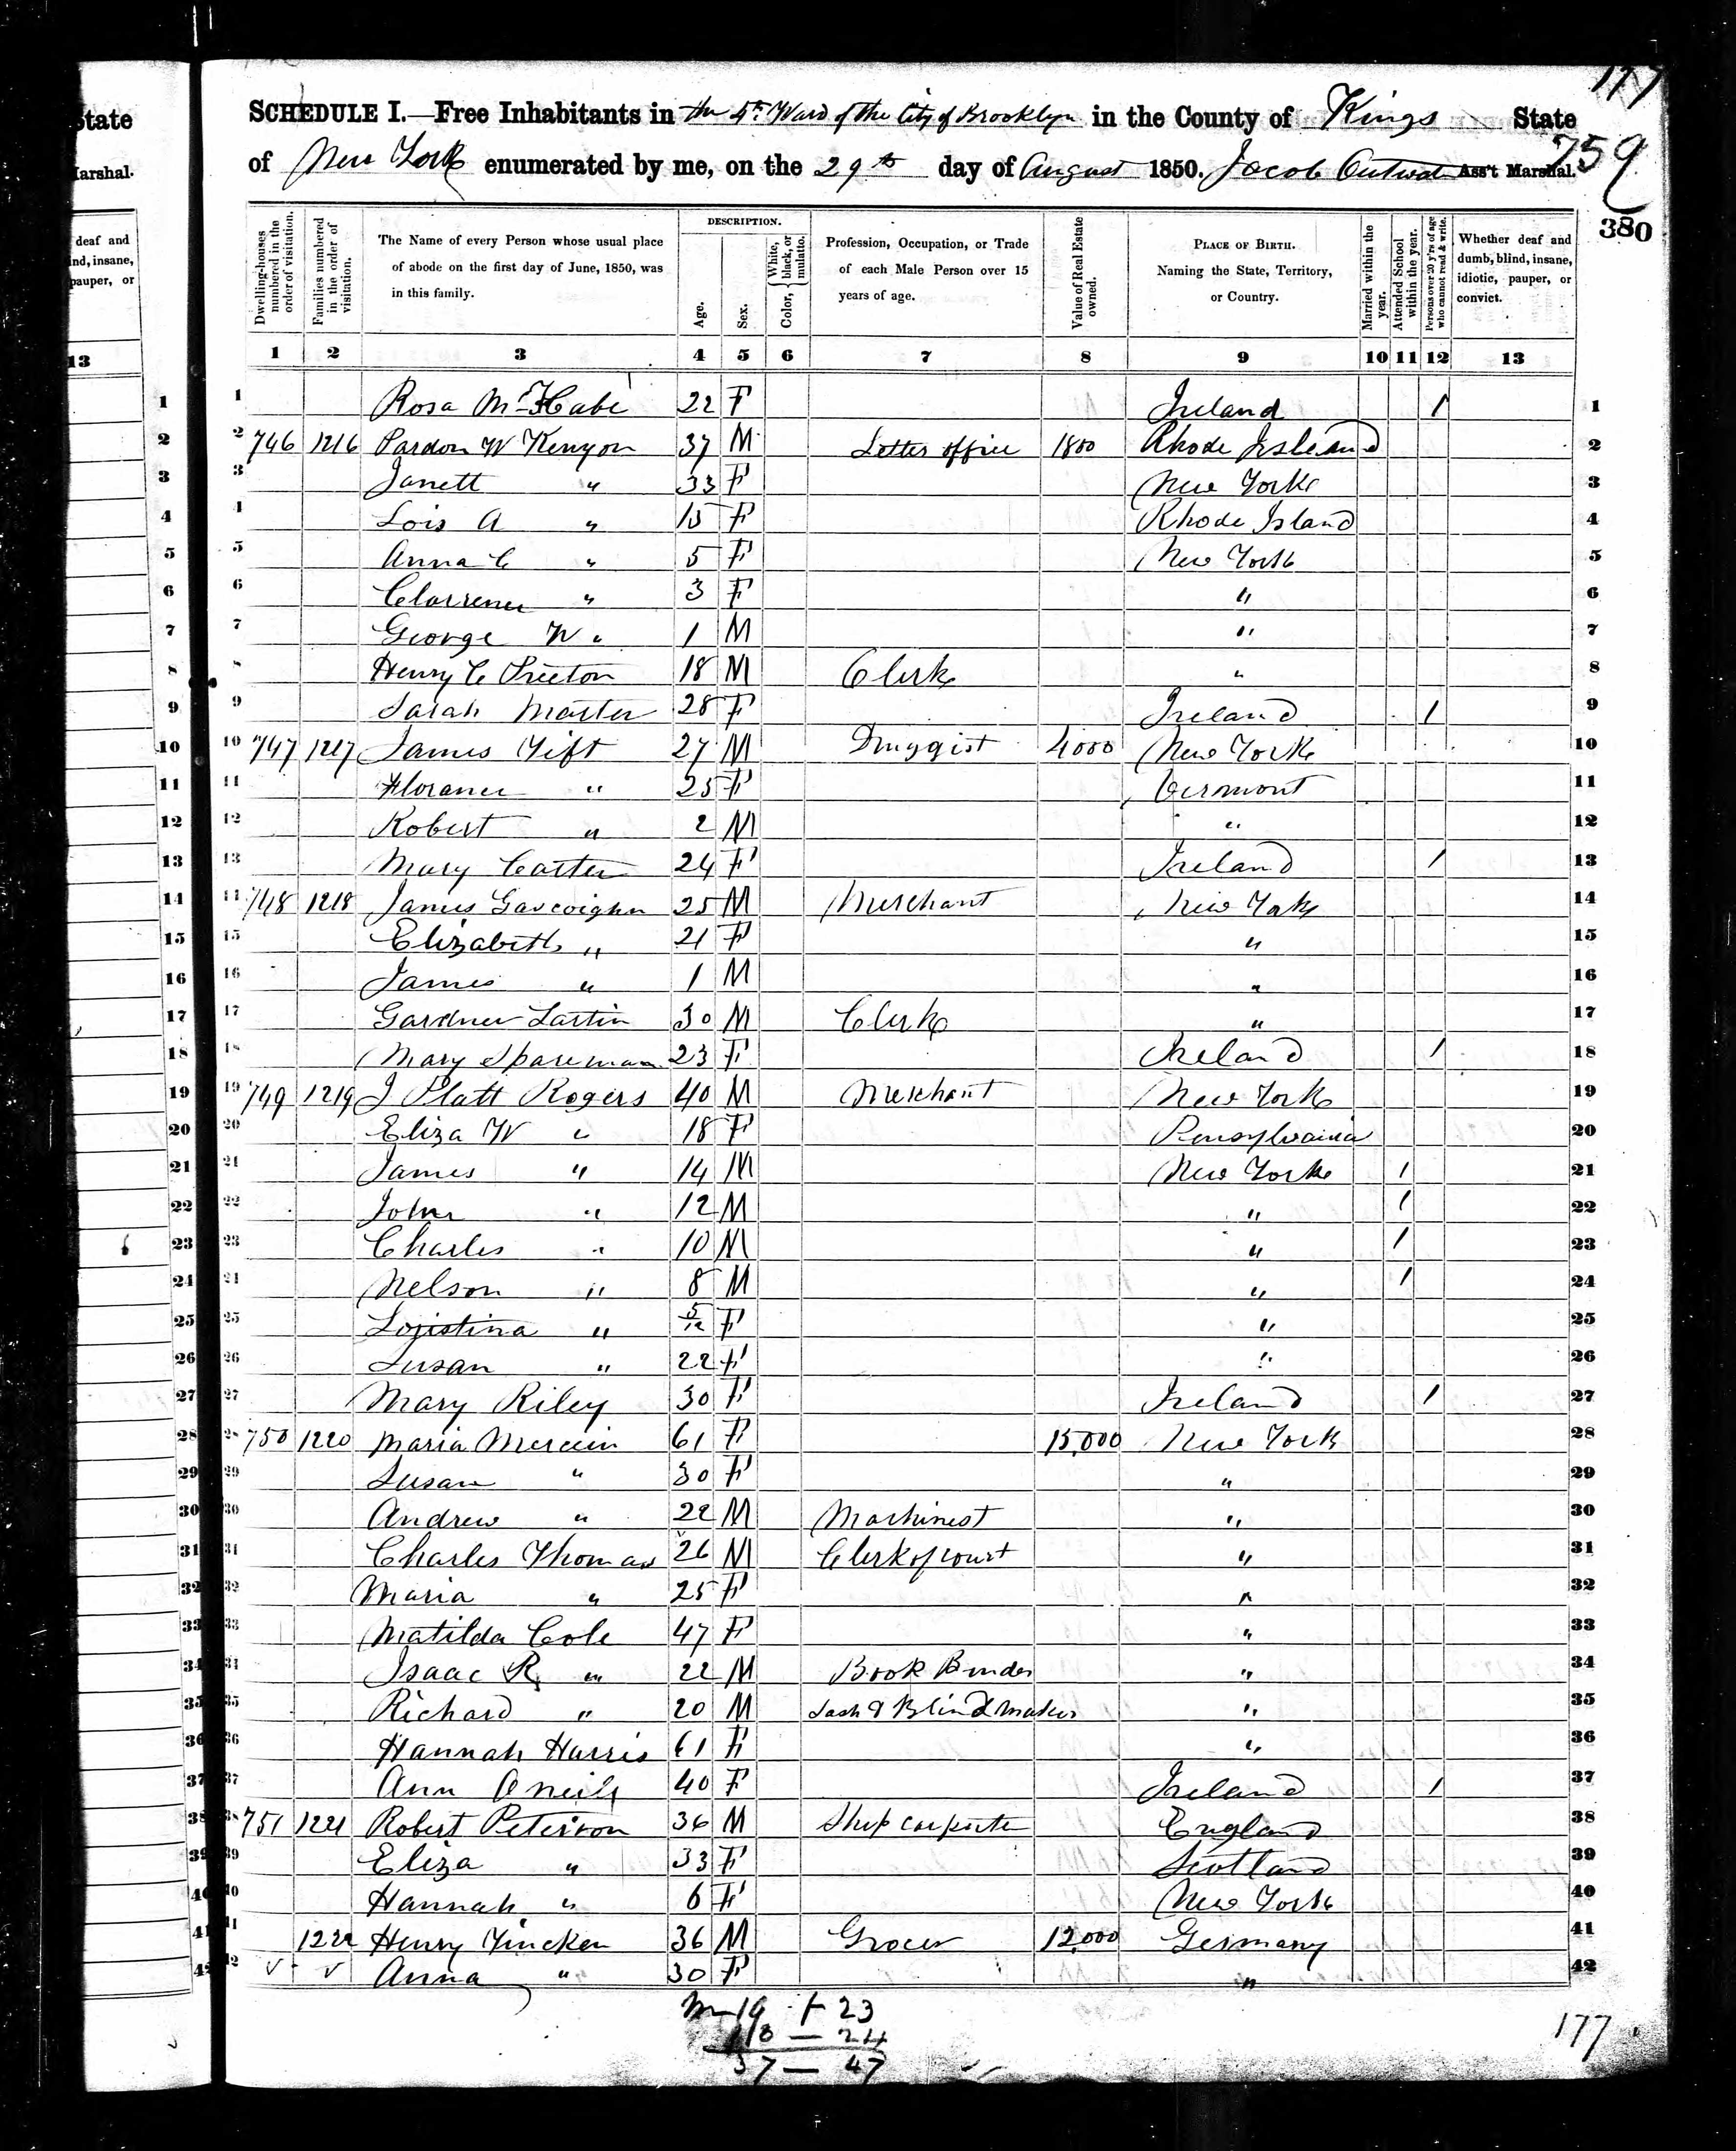 177
SCHEDULE I.—Free Inhabitants in the 5th Ward of the City of Brooklyn in the County of Kings State
of New York enumerated by me, on the 29th day of August 1850. Jacob Ass't Marshal.
759
380
State
Marshal.
deaf and
ind, insane,
pauper, or
13
Dwelling-houses numbered in the order of visitation.
Families numbered in the order of visitation.
The Name of every Person whose usual place of abode on the first day of June, 1850, was in this family.
DESCRIPTION.
Age.
Sex.
Color, { White, black, or mulatto.
Profession, Occupation, or Trade of each Male Person over 15 years of age.
Value of Real Estate owned.
PLACE OF BIRTH. Naming the State, Territory, or Country.
Married within the year.
Attended School within the year.
Persons over 20 y'rs of age who cannot read & write.
Whether deaf and dumb, blind, insane, idiotic, pauper, or convict.
1 2 3 4 5 6 7 8 9 10 11 12 13
1 Rosa McCabe 22 F Ireland 1 1
2 746 1216 Pardon W Kenyon 37 M Letter office 1800 Rhode Island 2
3 Janett " 33 F New York 3
4 Lois A " 15 F Rhode Island 4
5 Anna C " 5 F New York 5
6 " 3 F " 6
7 George W " 1 M " 7
8 Henry C 18 M Clerk " 8
9 Sarah 28 F Ireland 1 9
10 747 1217 James Tift 27 M Druggist 4000 New York 10
11 Florance " 25 F Vermont 11
12 Robert " 2 M " 12
13 Mary Carter 24 F Ireland 1 13
14 748 1218 James Gascoighn 25 M Merchant New York 14
15 Elizabeth " 21 F " 15
16 James " 1 M " 16
17 Gardner 30 M Clerk " 17
18 Mary Spareman 23 F Ireland 1 18
19 749 1219 J Platt Rogers 40 M Merchant New York 19
20 Eliza W " 18 F Pensylvania 20
21 James " 14 M New York 1 21
22 John " 12 M " 1 22
23 Charles " 10 M " 1 23
24 Nelson " 8 M " 1 24
25 " 5/12 F " 25
26 Susan " 22 F " 26
27 Mary Riley 30 F Ireland 1 27
28 750 1220 Maria Mercein 61 F 15,000 New York 28
29 Susan " 30 F " 29
30 Andrew " 22 M Machinest " 30
31 Charles Thomas 26 M Clerk of court " 31
32 Maria " 25 F " 32
33 Matilda Cole 47 F " 33
34 Isaac R " 22 M Book Binder " 34
35 Richard " 20 M Sash & Blind Maker " 35
36 Hannah Harris 61 F " 36
37 Ann O Neill 40 F Ireland 1 37
38 751 1221 Robert Peterson 36 M Ship carpenter England 38
39 Eliza " 33 F Scotland 39
40 Hannah " 6 F New York 40
41 1222 Henry Tincken 36 M Grocer 12,000 Germany 41
42 v v Anna " 30 F " 42
m—19 f 23
18 — 24
37 — 47
177